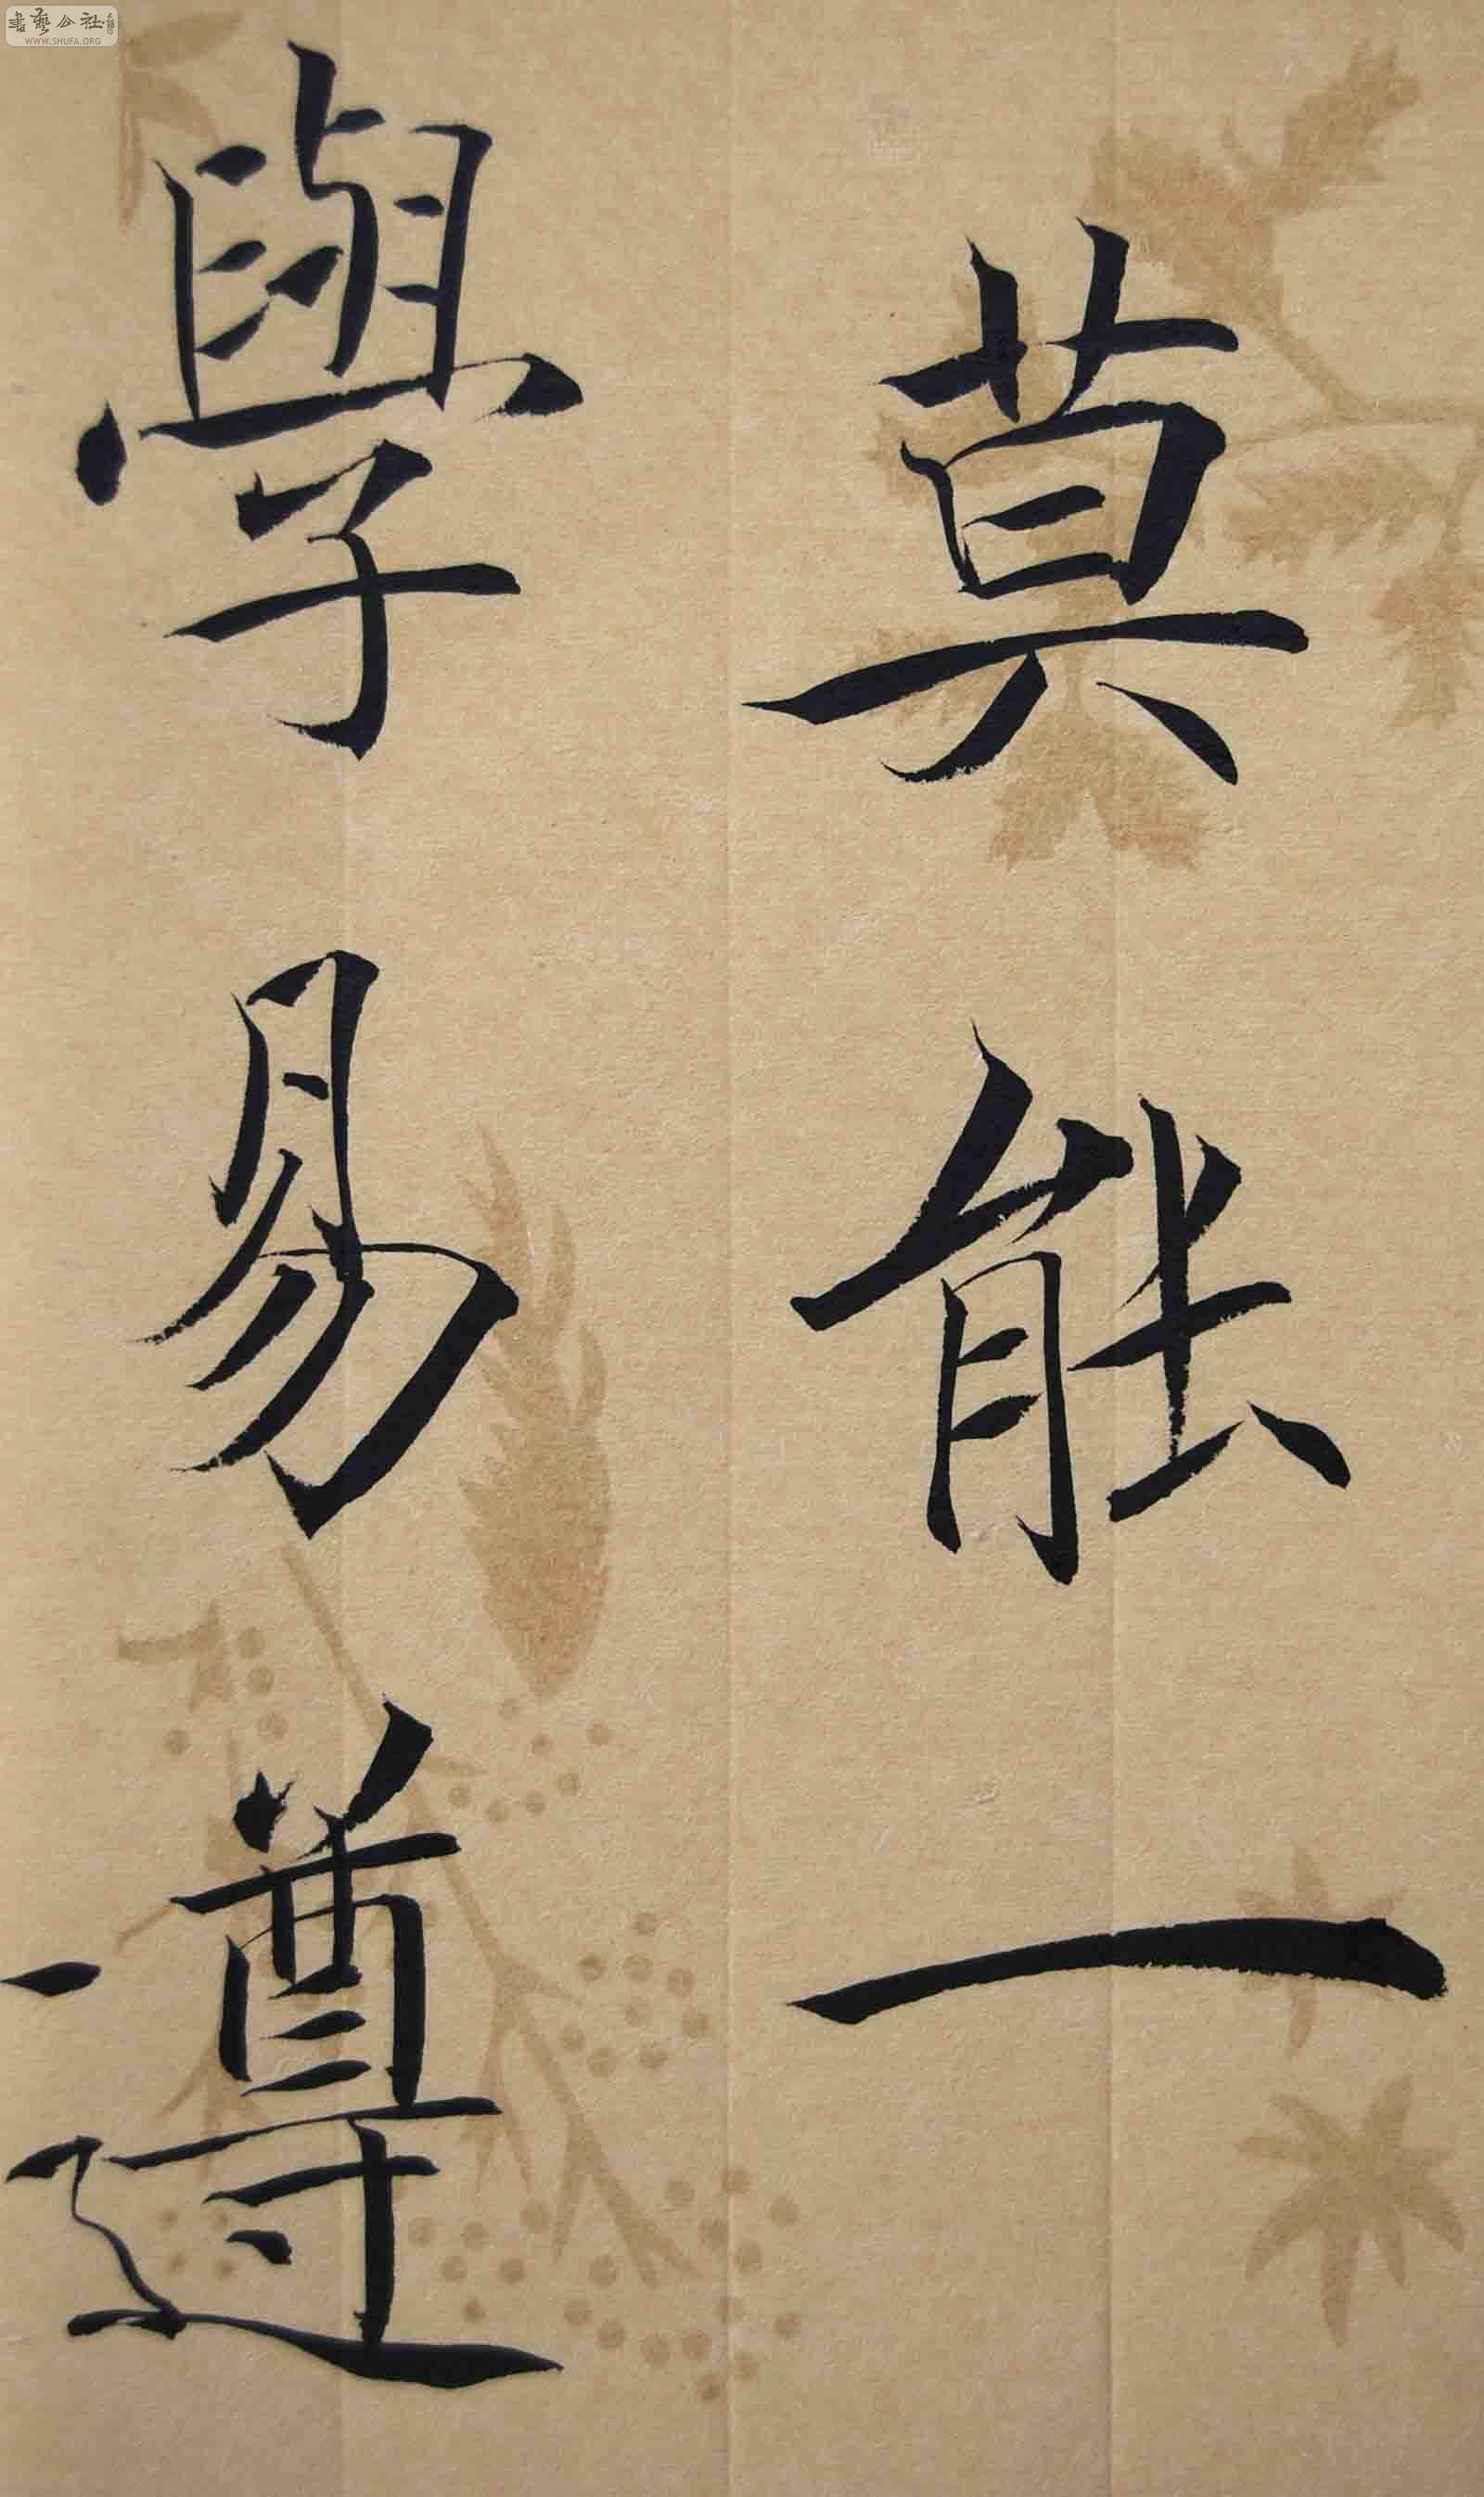 莫能一
學易遵
書藝公社
WWW.SHUFA.ORG